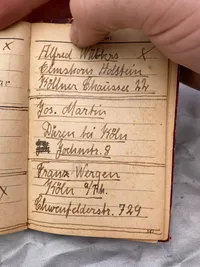 x
Alfred Wübbers x
Elmshorn Holstein
Köllner Chaussee 22
Jos. Martin
Düren bei Köln
Jochemstr. 8
Franz Wergen
Köln a/Rh.
Ehrenfelderstr. 729
x